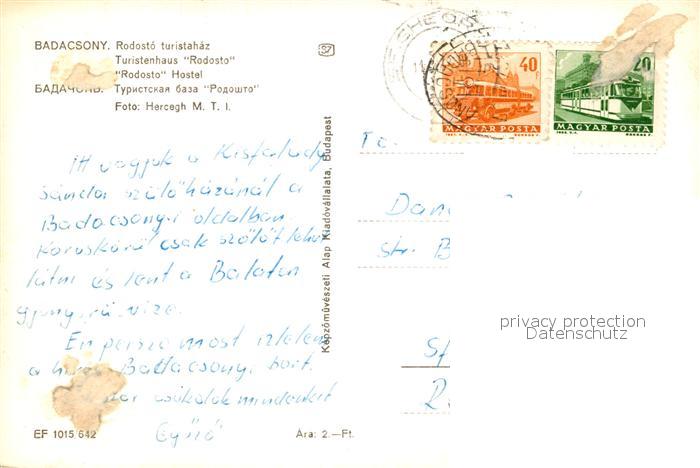 BADACSONY. Rodostó turistaház
Turistenhaus "Rodosto"
"Rodosto" Hostel
БАДАЧОНЬ. Туристская база "Родошто"
Foto: Hercegh M. T. I.
Itt vagyok a Kisfaludy
Sándor szülőházánál a
Badacsonyi oldalban
Köröskörül csak szőlőt lehet
látni és lent a Balaton
gyönyörű vize.
Én persze most ízlelem
a híres Badacsonyi bort.
csókolok mindenkit
Győző
EF 1015/642
Ára: 2.—Ft.
Képzőművészeti Alap Kiadóvállalata, Budapest
40
MAGYAR POSTA
20
MAGYAR POSTA
To.
Dan
str. B
St
R
privacy protection
Datenschutz